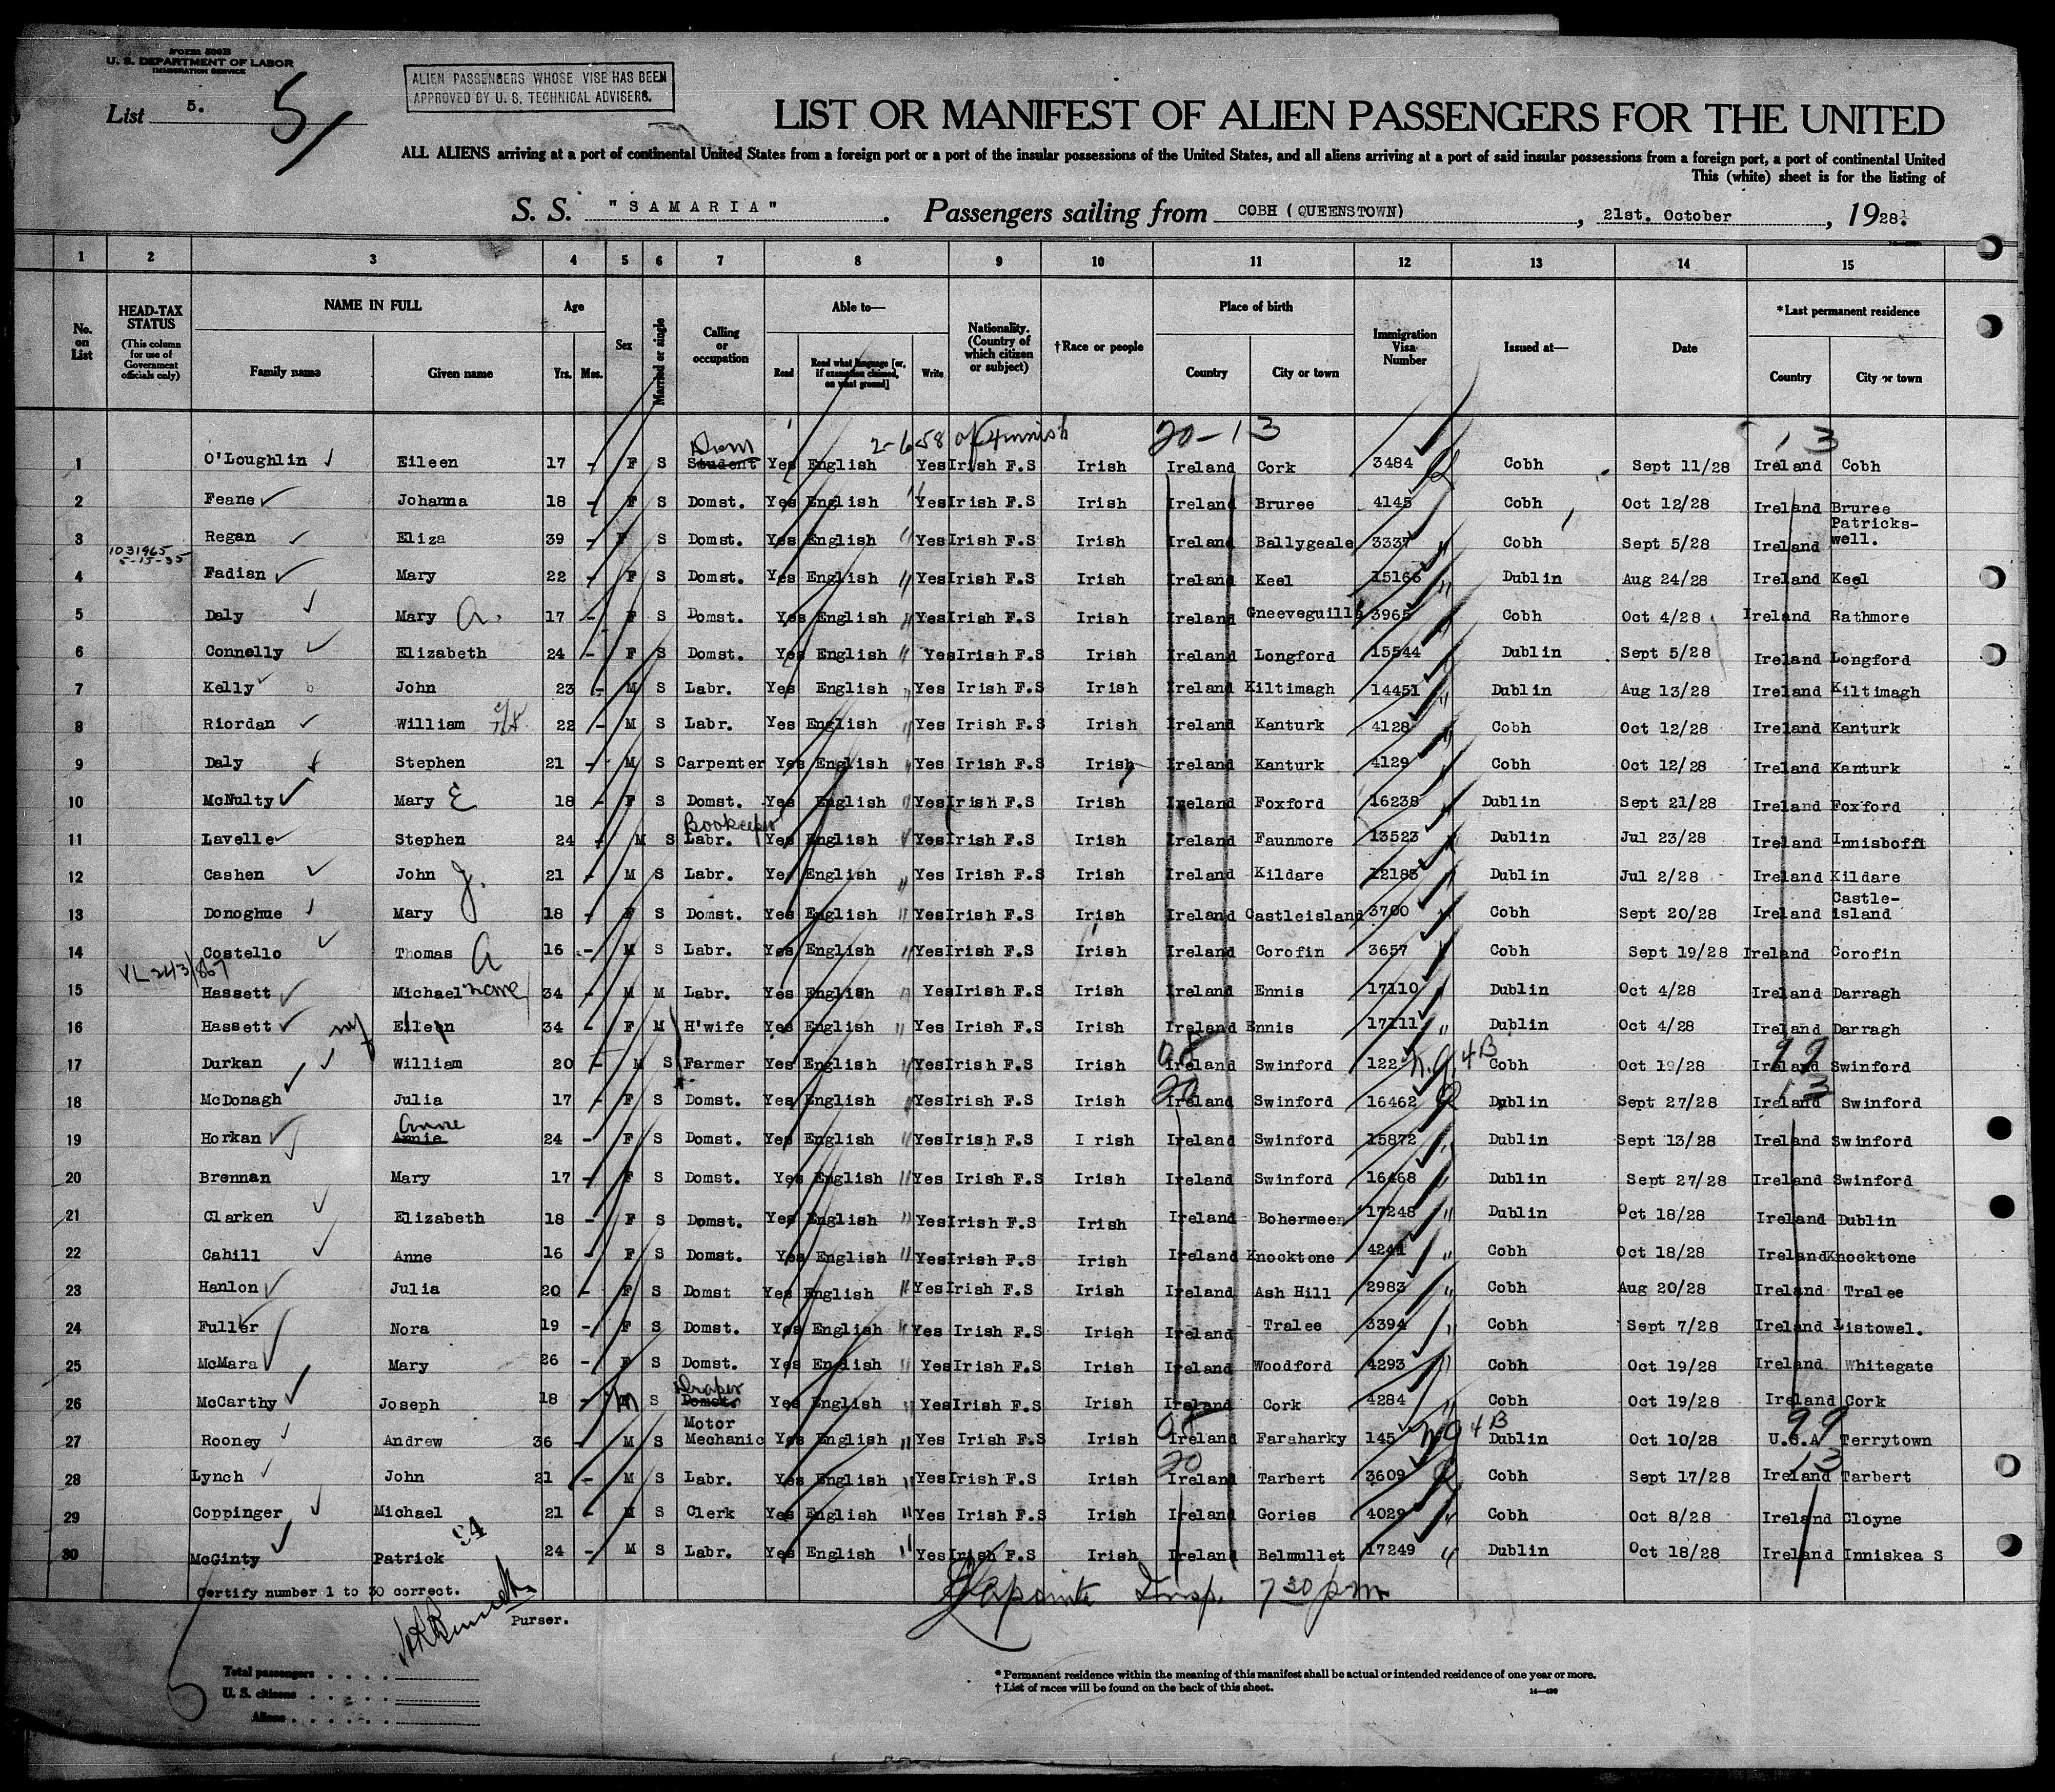 Form 500B
U. S. DEPARTMENT OF LABOR
IMMIGRATION SERVICE
List 5. 5
ALIEN PASSENGERS WHOSE VISE HAS BEEN
APPROVED BY U. S. TECHNICAL ADVISERS.
LIST OR MANIFEST OF ALIEN PASSENGERS FOR THE UNITED
ALL ALIENS arriving at a port of continental United States from a foreign port or a port of the insular possessions of the United States, and all aliens arriving at a port of said insular possessions from a foreign port, a port of continental United
This (white) sheet is for the listing of
S. S. "SAMARIA". Passengers sailing from COBH (QUEENSTOWN), 21st. October, 1928.
1 2 3 4 5 6 7 8 9 10 11 12 13 14 15
No. on List HEAD-TAX STATUS (This column for use of Government officials only) NAME IN FULL Family name Given name Age Yrs. Mos. Sex Married or single Calling or occupation Able to— Read Read what language [or, if exemption claimed, on what ground] Write Nationality. (Country of which citizen or subject) †Race or people Place of birth Country City or town Immigration Visa Number Issued at— Date *Last permanent residence Country City or town
2-6-58 20-13 13
1 O'Loughlin Eileen 17 - F S Dom Student Yes English Yes Irish F.S Irish Ireland Cork 3484 Cobh Sept 11/28 Ireland Cobh
2 Feane Johanna 18 - F S Domst. Yes English " Yes Irish F.S Irish Ireland Bruree 4145 Cobh Oct 12/28 Ireland Bruree
3 Regan Eliza 39 - F S Domst. Yes English " Yes Irish F.S Irish Ireland Ballygeale 3337 " Cobh Sept 5/28 Ireland Patricks-well.
1031965
5-15-35
4 Fadian Mary 22 - F S Domst. Yes English " Yes Irish F.S Irish Ireland Keel 15166 " Dublin Aug 24/28 Ireland Keel
5 Daly Mary A. 17 - F S Domst. Yes English " Yes Irish F.S Irish Ireland Gneeveguill 3965 " Cobh Oct 4/28 Ireland Rathmore
6 Connelly Elizabeth 24 - F S Domst. Yes English " Yes Irish F.S Irish Ireland Longford 15544 " Dublin Sept 5/28 Ireland Longford
7 Kelly John 23 - M S Labr. Yes English " Yes Irish F.S Irish Ireland Kiltimagh 14451 " Dublin Aug 13/28 Ireland Kiltimagh
8 Riordan William 22 - M S Labr. Yes English " Yes Irish F.S Irish Ireland Kanturk 4128 " Cobh Oct 12/28 Ireland Kanturk
9 Daly Stephen 21 - M S Carpenter Yes English " Yes Irish F.S Irish Ireland Kanturk 4129 " Cobh Oct 12/28 Ireland Kanturk
10 McNulty Mary E 18 - F S Domst. Yes English " Yes Irish F.S Irish Ireland Foxford 16238 " Dublin Sept 21/28 Ireland Foxford
11 Lavelle Stephen 24 - M S Bookeeper Labr. Yes English " Yes Irish F.S Irish Ireland Faunmore 13523 " Dublin Jul 23/28 Ireland Innisboffi
12 Cashen John J. 21 - M S Labr. Yes English " Yes Irish F.S Irish Ireland Kildare 12183 " Dublin Jul 2/28 Ireland Kildare
13 Donoghue Mary 18 - F S Domst. Yes English " Yes Irish F.S Irish Ireland Castleisland 3700 " Cobh Sept 20/28 Ireland Castle-island
14 Costello Thomas A 16 - M S Labr. Yes English " Yes Irish F.S Irish Ireland Corofin 3657 " Cobh Sept 19/28 Ireland Corofin
15 Hassett Michael 34 - M M Labr. Yes English " Yes Irish F.S Irish Ireland Ennis 17110 " Dublin Oct 4/28 Ireland Darragh
16 Hassett Eileen 34 - F M H'wife Yes English " Yes Irish F.S Irish Ireland Ennis 17111 " Dublin Oct 4/28 Ireland Darragh
17 Durkan William 20 - M S Farmer Yes English " Yes Irish F.S Irish Ireland Swinford 122 4B Cobh Oct 19/28 99 Ireland Swinford
18 McDonagh Julia 17 - F S Domst. Yes English " Yes Irish F.S Irish 20 Ireland Swinford 16462 Dublin Sept 27/28 13 Ireland Swinford
19 Horkan Anne Annie 24 - F S Domst. Yes English " Yes Irish F.S I rish Ireland Swinford 15872 " Dublin Sept 13/28 Ireland Swinford
20 Brennan Mary 17 - F S Domst. Yes English " Yes Irish F.S Irish Ireland Swinford 16468 " Dublin Sept 27/28 Ireland Swinford
21 Clarken Elizabeth 18 - F S Domst. Yes English " Yes Irish F.S Irish Ireland Bohermeen 17248 " Dublin Oct 18/28 Ireland Dublin
22 Cahill Anne 16 - F S Domst. Yes English " Yes Irish F.S Irish Ireland Knocktone 4241 " Cobh Oct 18/28 Ireland Knocktone
23 Hanlon Julia 20 - F S Domst Yes English " Yes Irish F.S Irish Ireland Ash Hill 2983 " Cobh Aug 20/28 Ireland Tralee
24 Fuller Nora 19 - F S Domst. Yes English " Yes Irish F.S Irish Ireland Tralee 3394 " Cobh Sept 7/28 Ireland Listowel.
25 McMara Mary 26 - F S Domst. Yes English " Yes Irish F.S Irish Ireland Woodford 4293 " Cobh Oct 19/28 Ireland Whitegate
26 McCarthy Joseph 18 - M S Draper Domst. Yes English " Yes Irish F.S Irish Ireland Cork 4284 " Cobh Oct 19/28 Ireland Cork
27 Rooney Andrew 36 - M S Motor Mechanic Yes English " Yes Irish F.S Irish Ireland Faraharky 145 4B Dublin Oct 10/28 99 U.S.A Terrytown
28 Lynch John 21 - M S Labr. Yes English " Yes Irish F.S Irish 20 Ireland Tarbert 3609 Cobh Sept 17/28 13 Ireland Tarbert
29 Coppinger Michael 21 - M S Clerk Yes English " Yes Irish F.S Irish Ireland Gories 4029 " Cobh Oct 8/28 Ireland Cloyne
30 McGinty Patrick 24 - M S Labr. Yes English " Yes Irish F.S Irish Ireland Belmullet 17249 " Dublin Oct 18/28 Ireland Inniskea S
Certify number 1 to 30 correct.
Lapointe Insp. 7 20 pm
Purser.
Total passengers
U. S. citizens
Aliens
* Permanent residence within the meaning of this manifest shall be actual or intended residence of one year or more.
† List of races will be found on the back of this sheet.